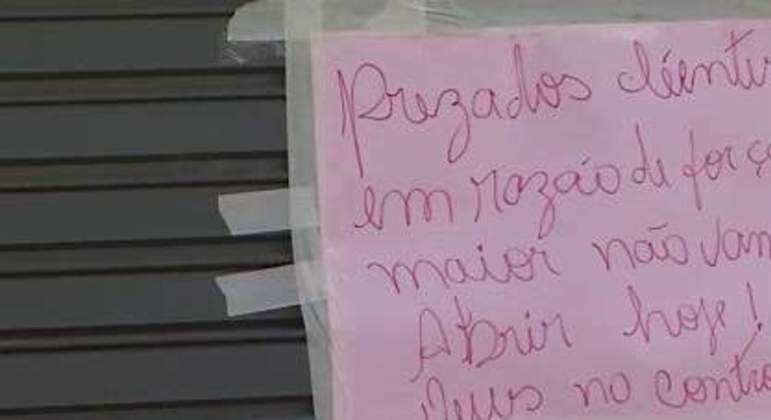 Prezados cliente
em razão de força
maior não vam
Abrir hoje!
Deus no contro